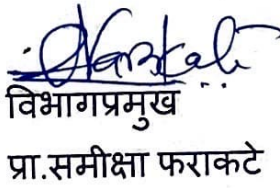 विभागप्रमुख
प्रा.समीक्षा फराकटे